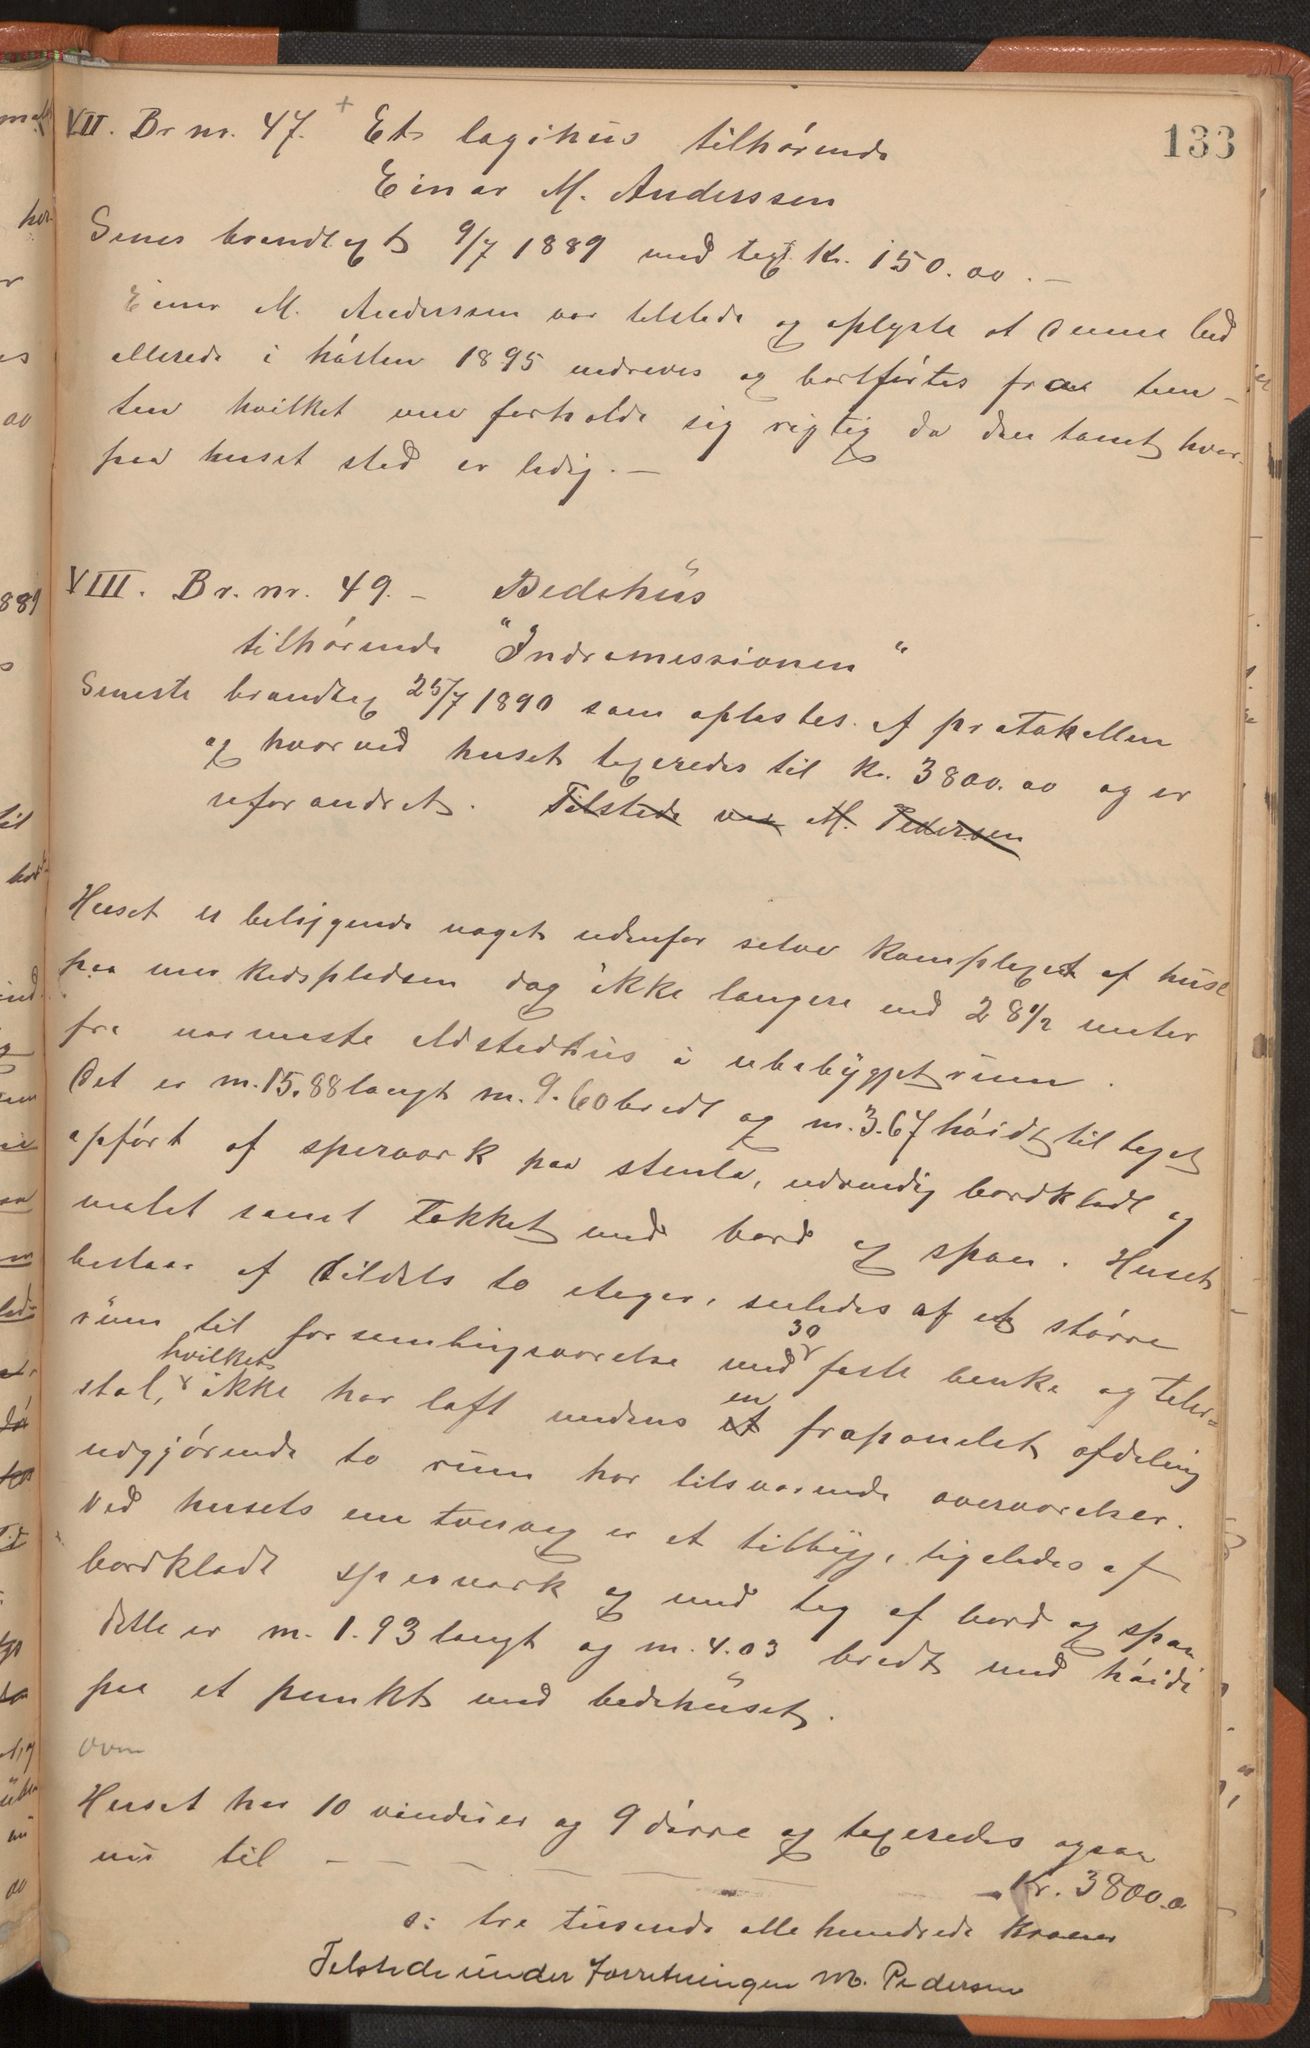 133
VII. Br nr. 47. + Et logihus tilhörende
Einar M. Anderssen
Senes brandtagt 9/7 1889 med taxt Kr. 150.00.—
Einar M. Anderssen var tilstede og oplyste at denne bod
allerede i hösten 1895 nedreves og bortförtes fra tom-
ten hvilket maa forholde sig rigtig da den tomt hvor-
paa huset stod er ledig.—
VIII. Br. nr. 49.— Bedehus
tilhörende "Indremissionen"
Seneste brandtax 25/7 1890 som oplæstes af protokollen
og hvorved huset taxeredes til kr. 3800.00 og er
uforandret. Tilstede var M. Pedersen
Huset er beliggende noget udenfor selve komplexet af huse
paa markedspladsen dog ikke længere end 28 1/2 meter
fra nærmeste ildstedhus i ubebygget rum.
Det er m. 15.88 langt m. 9.60 bredt og m. 3.67 höidt til taget
opfört af sperværk paa stenla, udvendig bordklædt og
malet samt Tækket med bord og spon. Huset
bestaar af tildels to etager, saaledes af et större
rum til forsamlingsværelse med 30 faste benke og taler-
stol, hvilket ikke har loft medens en et frapanelet afdeling
udgjörende to rum har tilsvarende overværelser.
Ved husets ene tvervæg er et tilbyg, ligeledes af
bordklædt sperværk og med tag af bord og spon
dette er m. 1.93 langt og m. 4.03 bredt med höide
paa et punkt med bedehuset.
ovn
Huset har 10 vinduer og 9 dörre og taxeredes ogsaa
nu til — — — — — — Kr. 3800.00
s: tre tusende otte hundrede Kroner
Tilstede under Forretningen M. Pedersen